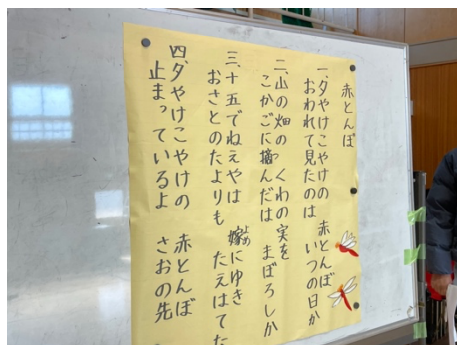 赤とんぼ
一、夕やけこやけの 赤とんぼ
おわれて見たのは いつの日か
二、山の畑の くわの実を
こかごに摘んだは まぼろしか
三、十五でねえやは 嫁によめゆき
おさとのたよりも たえはてた
四、夕やけこやけの 赤とんぼ
止まっているよ さおの先